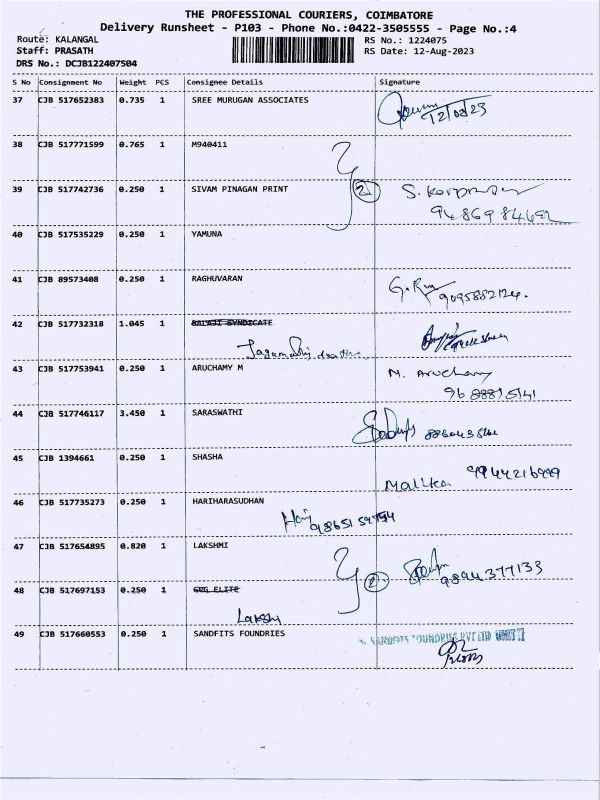 THE PROFESSIONAL COURIERS, COIMBATORE
Delivery Runsheet - P103 - Phone No.:0422-3505555 - Page No.:4
Route: KALANGAL RS No.: 1224075
Staff: PRASATH RS Date: 12-Aug-2023
DRS No.: DCJB122407504
S No Consignment No Weight PCS Consignee Details Signature
37 CJB 517652383 0.735 1 SREE MURUGAN ASSOCIATES
12/08/23
38 CJB 517771599 0.765 1 M940411
39 CJB 517742736 0.250 1 SIVAM PINAGAN PRINT
2
40 CJB 517535229 0.250 1 YAMUNA
41 CJB 89573408 0.250 1 RAGHUVARAN
42 CJB 517732318 1.045 1 BALAJI SYNDICATE
43 CJB 517753941 0.250 1 ARUCHAMY M M. Aruchamy
44 CJB 517746117 3.450 1 SARASWATHI
45 CJB 1394661 0.250 1 SHASHA
46 CJB 517735273 0.250 1 HARIHARASUDHAN
47 CJB 517654895 0.820 1 LAKSHMI
9894377133
2
48 CJB 517697153 0.250 1 GRG ELITE
49 CJB 517660553 0.250 1 SANDFITS FOUNDRIES SANDFITS FOUNDRIES PVT LTD UNIT